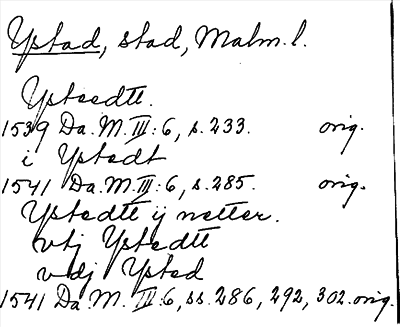 Ystad, stad, Malm. l.
Ystedtt.
1539 Da. M. III: 6, s. 233. orig.
i Ystedt
1541 Da. M. III: 6, s. 285. orig.
Ystedtt ij netter.
vtj Ystedtt
vdj Ysted
1541 Da. M. III: 6, ss. 286, 292, 302. orig.